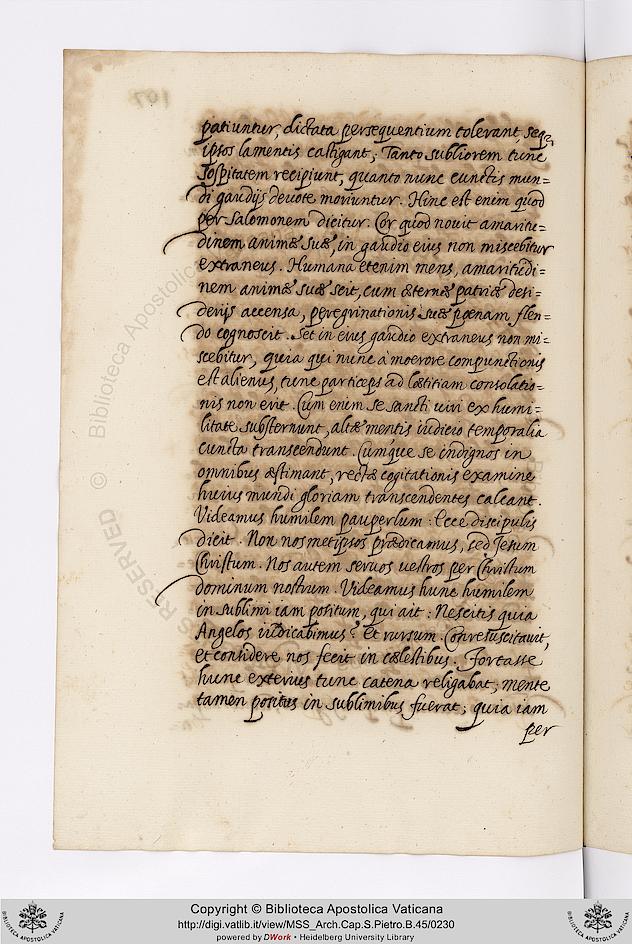 patiuntur, dictata persequentium tolerant, seq;
ipsos lamentis castigant; Tanto subliorem tunc
sospitatem recipiunt, quanto nunc cunctis mun=
di gaudijs devote moriuntur. Hinc est enim quod
per Salomonem dicitur. Cor quod novit amaritu=
dinem animæ suæ, in gaudio eius non miscebitur
extraneus. Humana etenim mens, amaritudi=
nem animæ suæ scit, cum æternæ patriæ desi=
derijs accensa, peregrinationis suæ pœnam flen=
do cognoscit. Set in eius gaudio extraneus non mi=
scebitur, quia qui nunc à moerore compunctionis
est alienus, tunc particeps ad lætitiam consolatio=
nis non erit. Cum enim se sancti viri ex humi=
litate substernunt, altæ mentis iudicio temporalia
cuncta transcendunt. Cumque se indignos in
omnibus æstimant, rectæ cogitationis examine
huius mundi gloriam transcendentes calcant.
Videamus humilem pauperlum: Ecce discipulis
dicit. Non nosmetipsos prædicamus, sed Jesum
Christum. Nos autem servos vestros per Christum
dominum nostrum. Videamus hunc humilem
in sublimi iam positum, qui ait: Nescitis quia
Angelos iudicabimus? Et rursum Conresuscitavit,
et considere nos fecit in cælestibus. Fortasse
hunc exterius tunc catena religabat; mente
tamen positus in sublimibus fuerat; quia iam
per
107
© Biblioteca Apostolica
RESERVED
Copyright © Biblioteca Apostolica Vaticana
http://digi.vatlib.it/view/MSS_Arch.Cap.S.Pietro.B.45/0230
powered by DWork • Heidelberg University Library